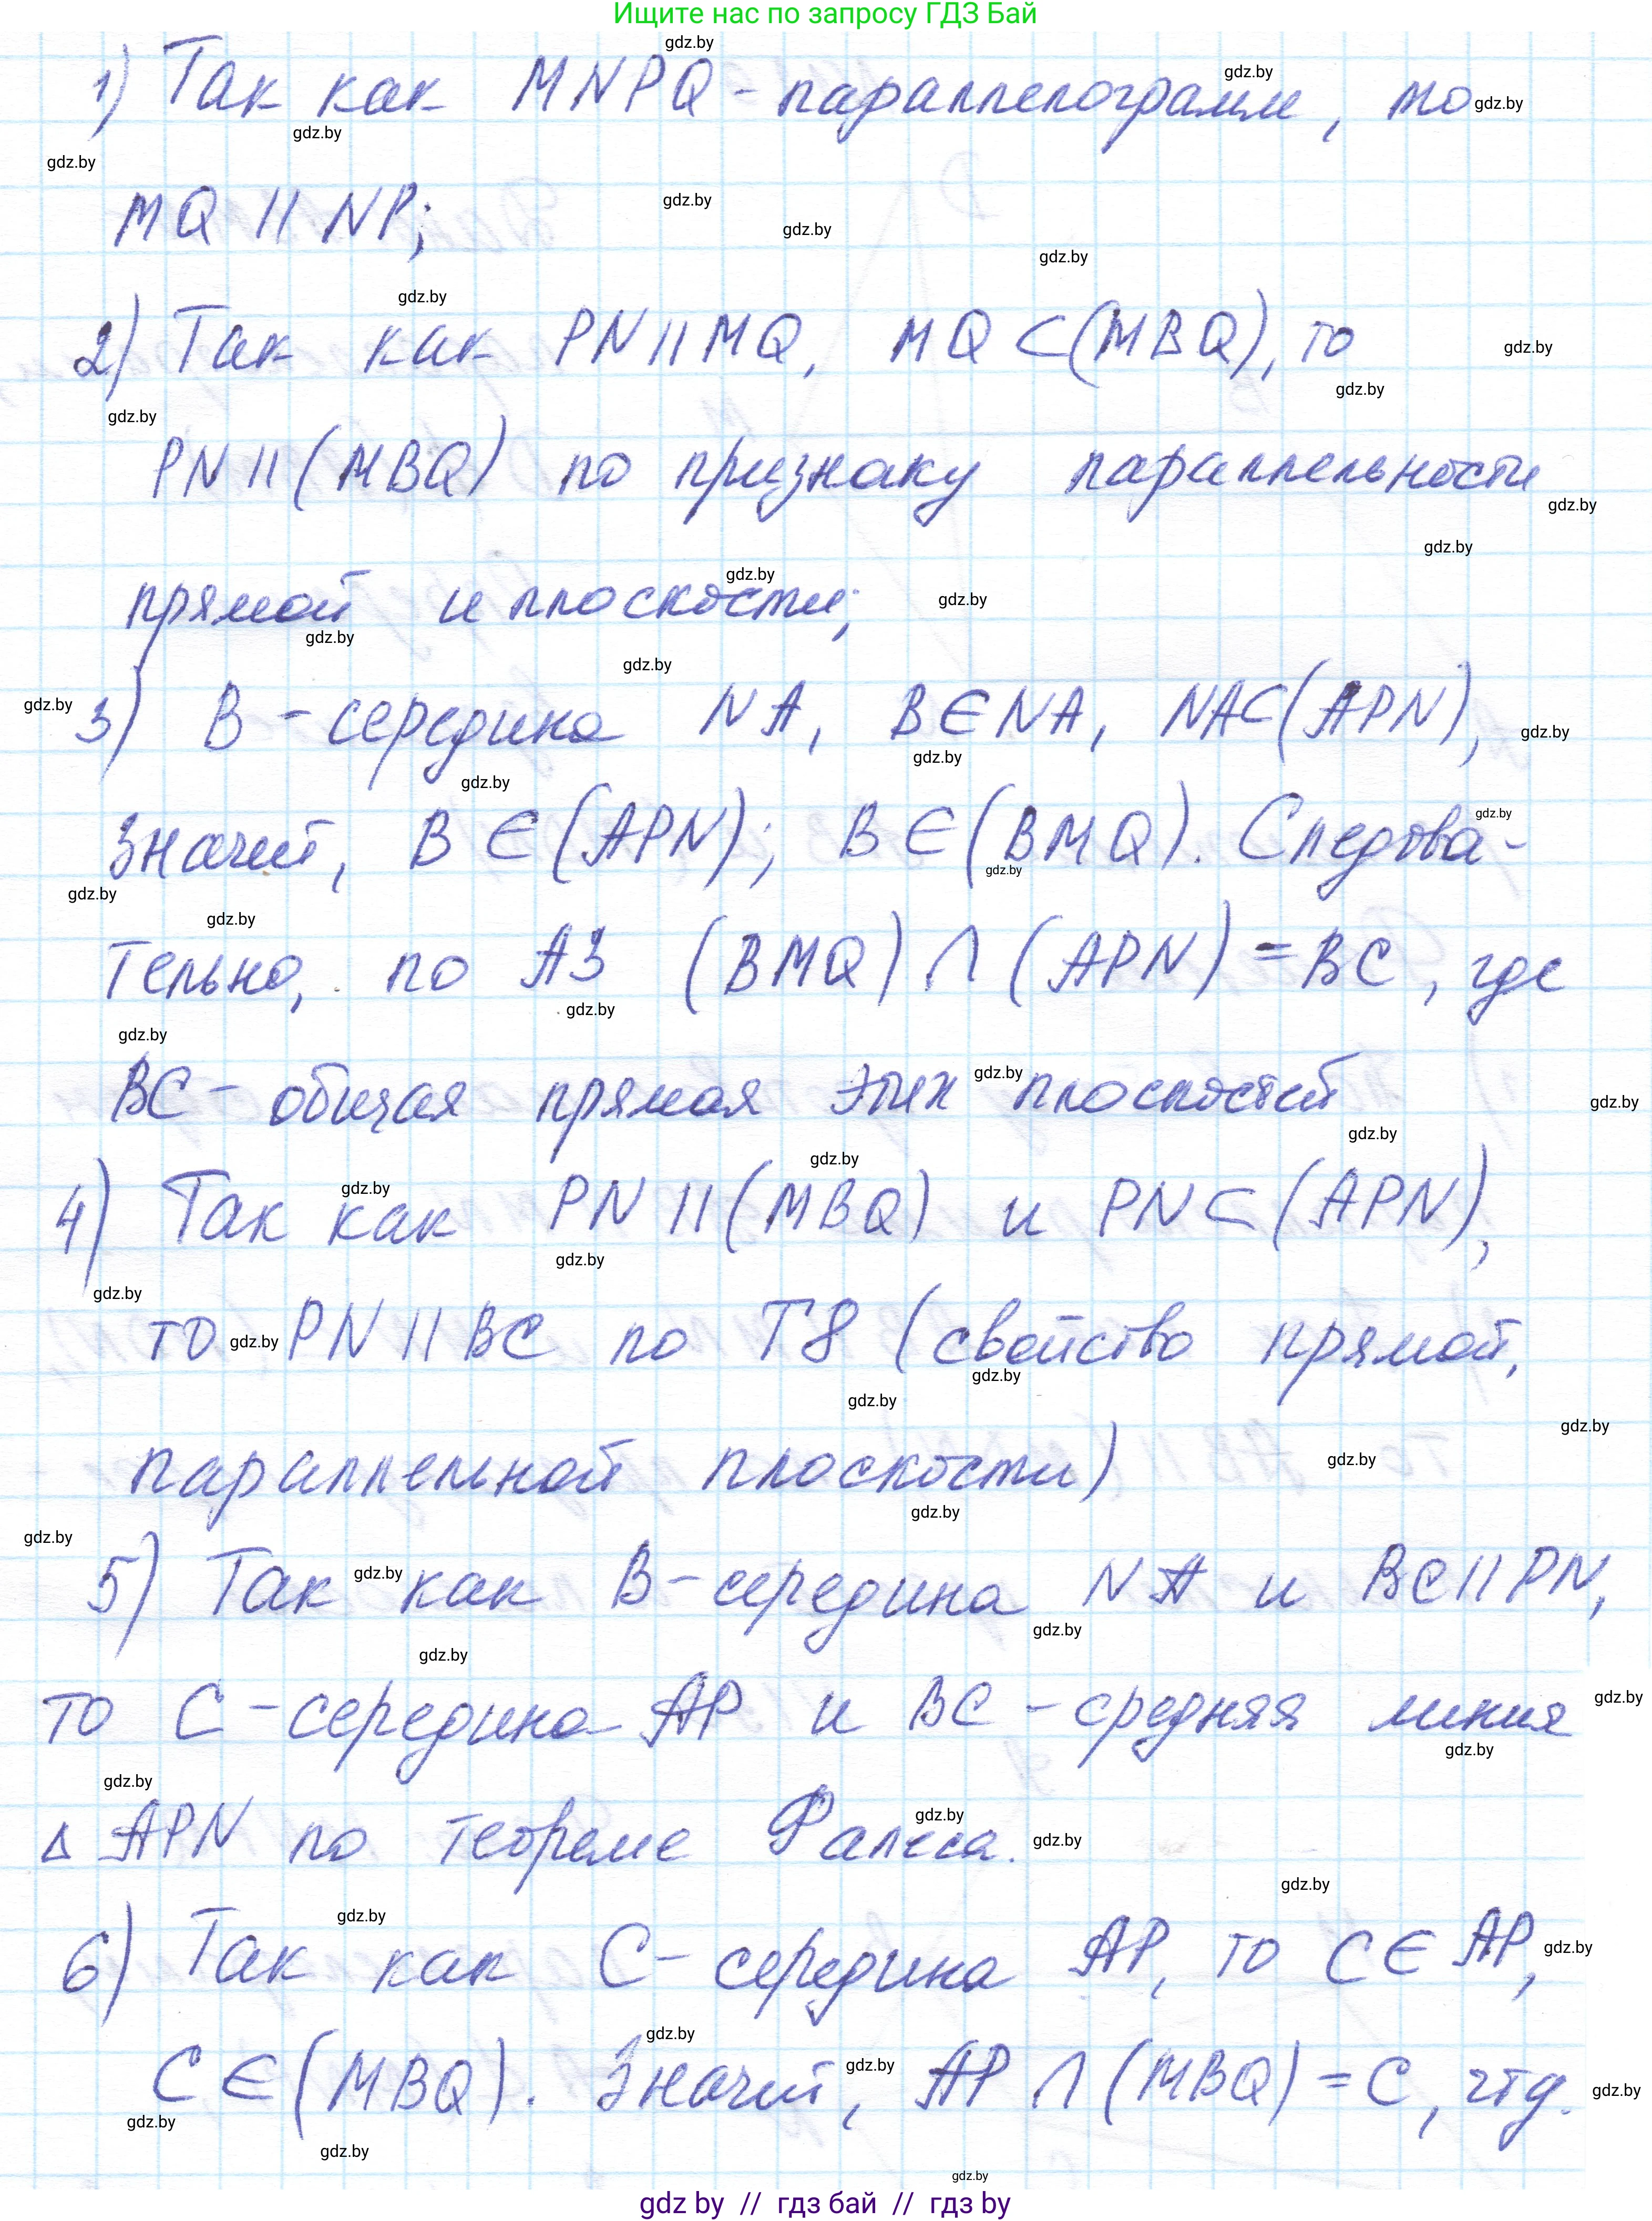 Ищите нас по запросу ГДЗ Бай
1) Так как MNPQ - параллелограмм, то
MQ || NP;
2) Так как PN || MQ, MQ ⊂ (MBQ), то
PN || (MBQ) по признаку параллельности
прямой и плоскости;
3) B - середина NA, B ∈ NA, NA ⊂ (APN),
значит, B ∈ (APN); B ∈ (BMQ). Следова-
тельно, по А3 (BMQ) ∩ (APN) = BC, где
BC - общая прямая этих плоскостей
4) Так как PN || (MBQ) и PN ⊂ (APN),
то PN || BC по Т8 (свойство прямой,
параллельной плоскости)
5) Так как B - середина NA и BC || PN,
то C - середина AP и BC - средняя линия
Δ APN по теореме Фалеса.
6) Так как C - середина AP, то C ∈ AP,
C ∈ (MBQ). Значит, AP ∩ (MBQ) = C, чтд.
gdz by // гдз бай // гдз by